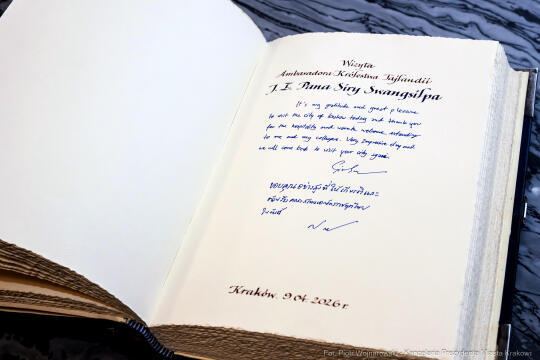 Wizyta
Ambasadora Królestwa Tajlandii
J. E. Pana Siry Swangsilpa
It's my gratitude and great pleasure
to visit the city of Krakow today and thank you
for the hospitality and warm welcome extending
to me and my colleagues. Very impressive day and
we all come back to visit your city again.
ขอบคุณอย่างสูงที่ให้เกียรติและ
ต้อนรับ
ในวันนี้
Kraków, 9.04.2026 r.
Fot. Piotr Wojnarowski / Kancelaria Prezydenta Miasta Krakowa